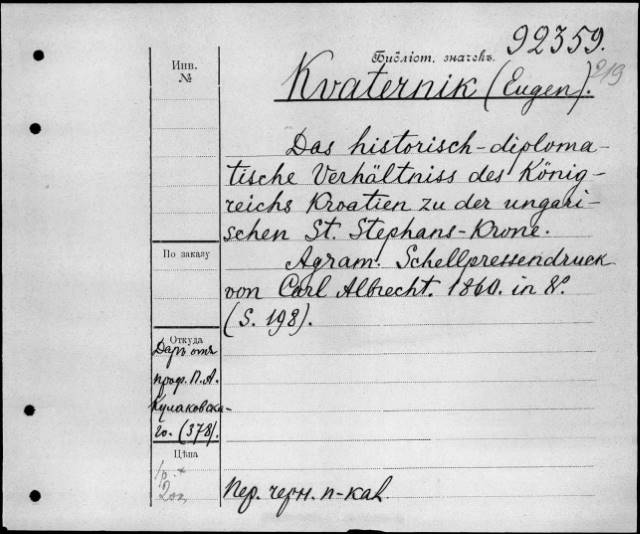 92359.
Библіот. значекъ.
219
Инв.
№
Kvaternik (Eugen).
Das historisch-diploma-
tische Verhältniss des König-
reichs Kroatien zu der ungari-
schen St. Stephans-Krone.
По заказу
Agram. Schellpressendruck
von Carl Albrecht. 1860. in 8º.
(S. 198).
Откуда
Даръ отъ
проф. П. А.
Кулаковска-
го. (378).
Цѣна
1р.
Пер. черн. п-каl.